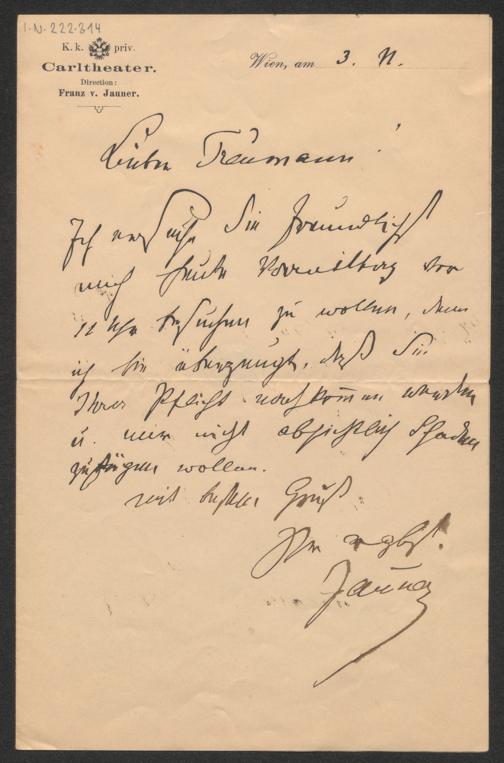 I.N. 222.314
K. k. priv.
Carltheater.
Direction:
Franz v. Jauner.
Wien, am 3. XI.
Lieber Treumann!
Ich ersuche Sie freundlichst
mich heute Vormittag vor
12 Uhr besuchen zu wollen, denn
ich bin überzeugt, daß Sie
Ihrer Pflicht nachkommen werden
u. mir nicht absichtlich Schaden
zufügen wollen.
mit bestem Gruß
Ihr ergbst.
Jauner